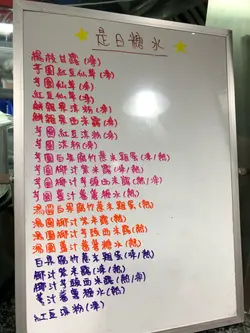 是日糖水
楊枝甘露(凍)
芋圓紅豆仙草(凍)
芋圓仙草(凍)
紅豆仙草(凍)
芋圓紅豆涼粉(凍)
芋圓涼粉(凍)
芋圓白果腐竹薏米雞蛋(凍/熱)
芋圓椰汁紫米露(凍/熱)
芋圓椰汁芋頭西米露(凍/熱)
芋圓薑汁番薯糖水(熱)
湯圓白果腐竹薏米雞蛋(熱)
湯圓椰汁紫米露(熱)
湯圓椰汁芋頭西米露(熱)
湯圓薑汁番薯糖水(熱)
白果腐竹薏米雞蛋(凍/熱)
椰汁紫米露(凍/熱)
椰汁芋頭西米露(熱/凍)
薑汁番薯糖水(熱)
紅豆涼粉(凍)